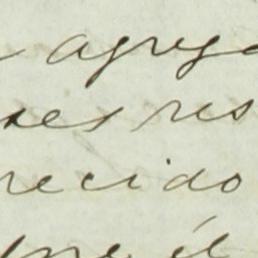 agrega
ses res
recido
que él